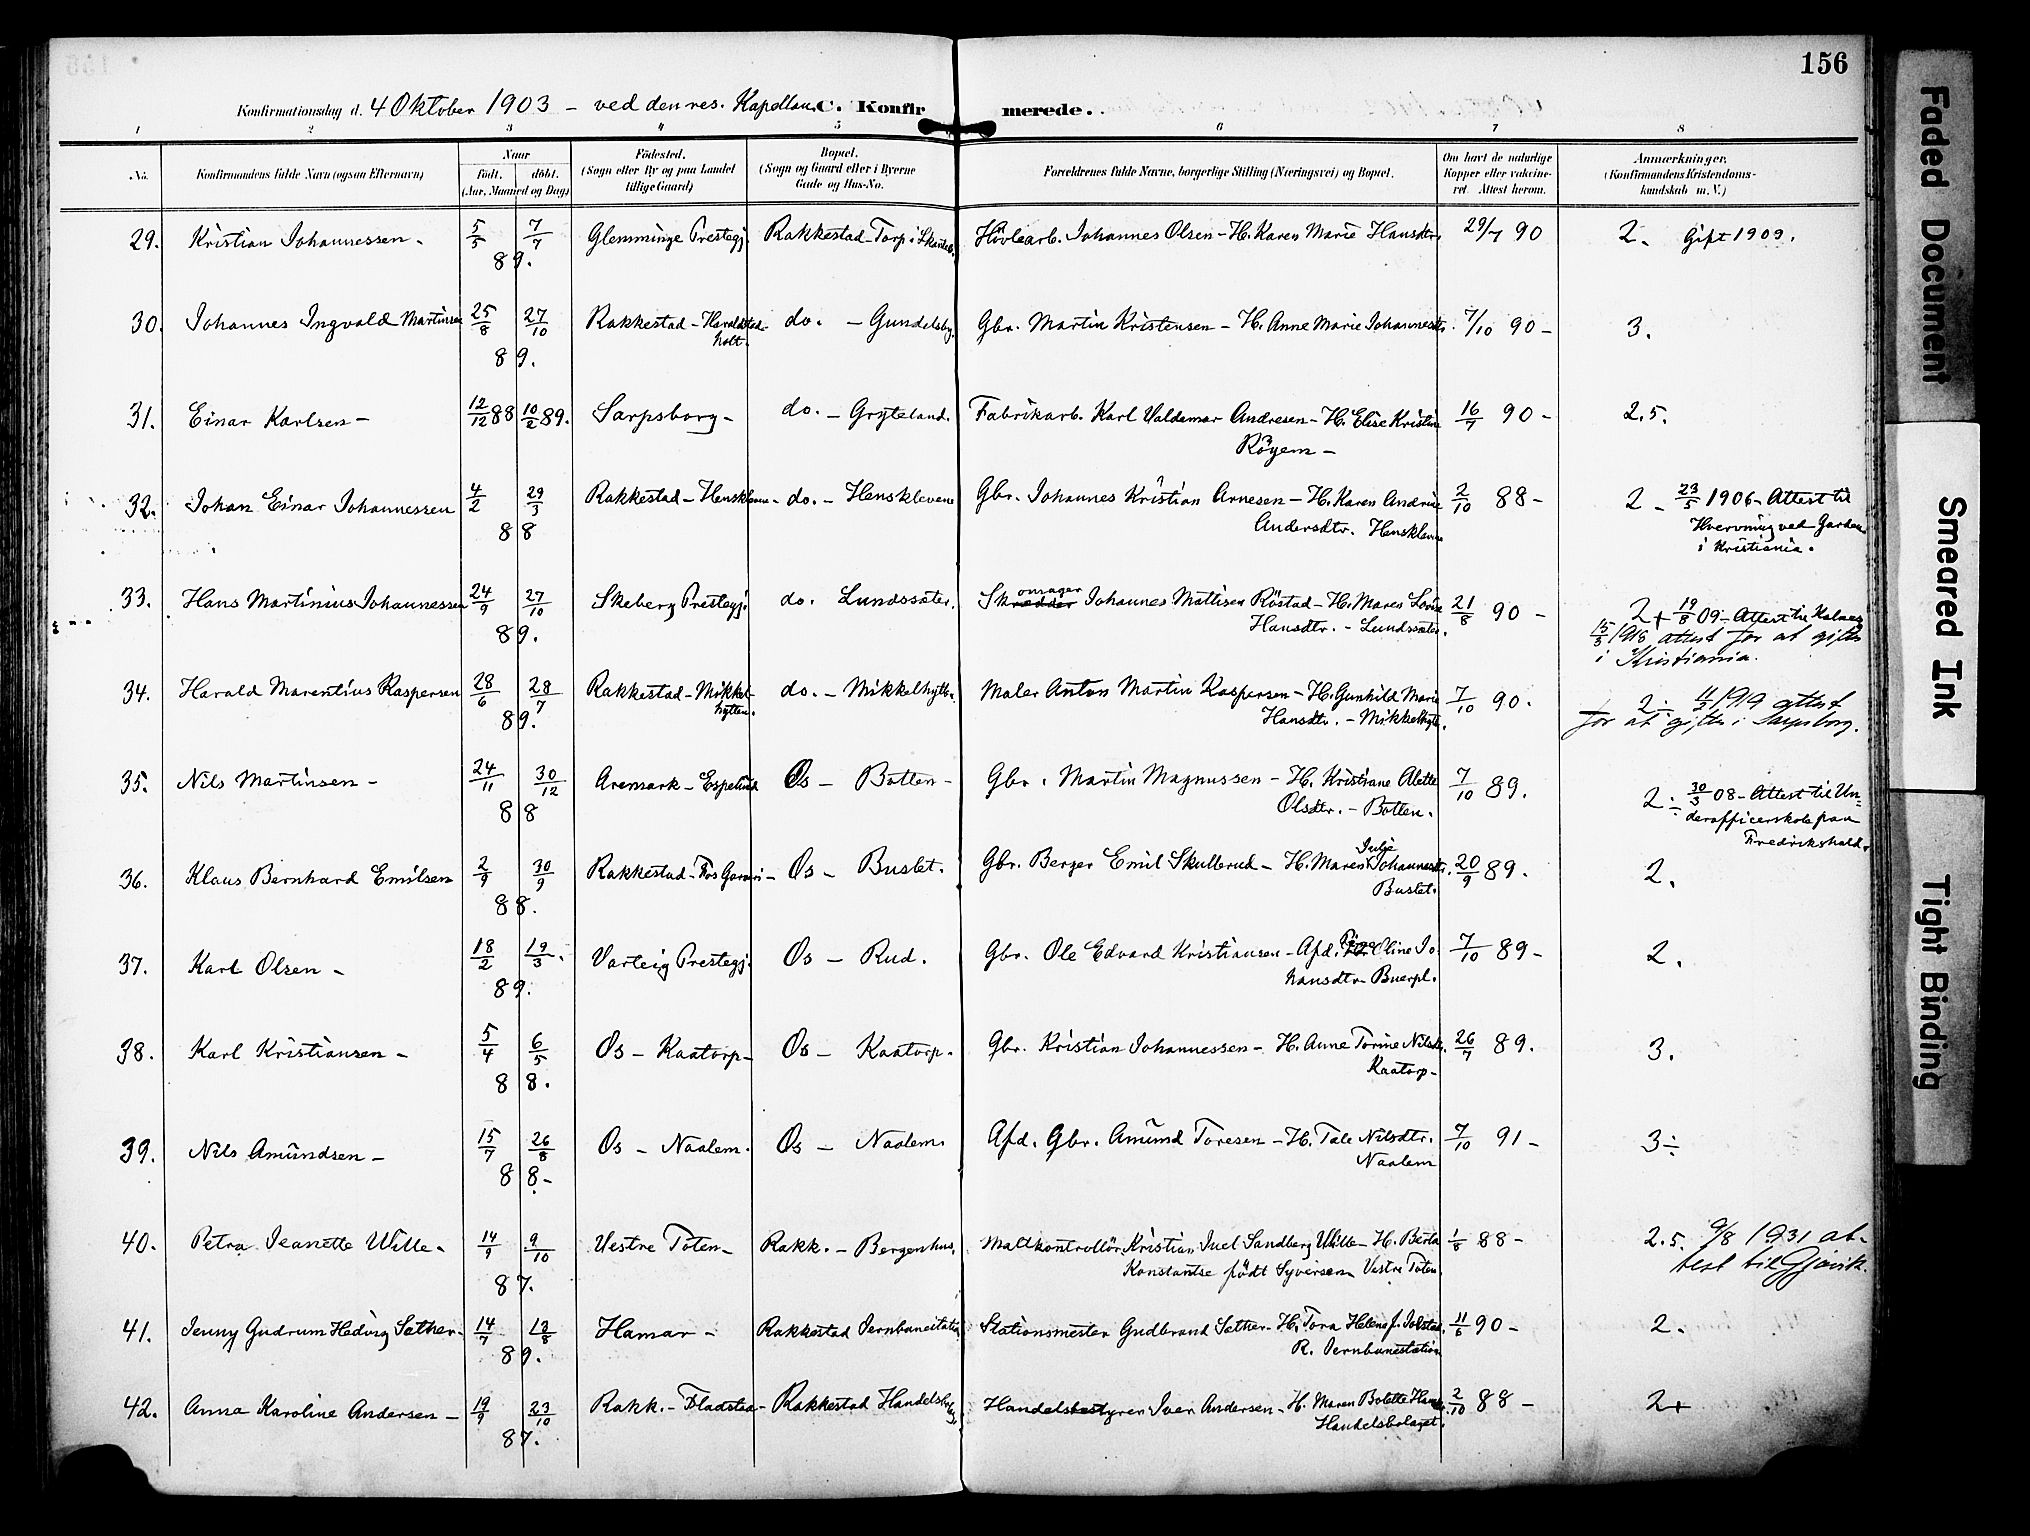 156
Konfirmationsdag d. 4 Oktober 1903 – ved den res. Kapellan. C. Konfirmerede.
1 2 3 4 5 6 7 8
No. Konfirmandens fulde Navn (ogsaa Efternavn) Naar Födt. döbt. (Aar, Maaned og Dag) Födested. (Sogn eller By og paa Landet tillige Gaard) Bopæl. (Sogn og Gaard eller i Byerne Gade og Hus-No. Forældrenes fulde Navne, borgerlige Stilling (Næringsvei) og Bopæl. Om havt de naturlige Kopper eller vakcineret. Attest herom. Anmærkninger. (Konfirmandens Kristendomskundskab m. V.)
29. Kristian Johannessen - 5/5 7/7 Glemminge Prestegj. Rakkestad - Torp i Hövlearb. Johannes Olsen - H. Karen Marie Hansdtr. 29/7 90 2. Gift 1909.
89.
30. Johannes Ingvald Martinsen 25/8 27/10 Rakkestad - Haraldstad- do. - Gundelsby. Gbr. Martin Kristensen - H. Anne Marie Johannesdtr. 7/10 90 - 3.
holt.
89.
31. Einar Karlsen - 12/12 88 10/2 89. Sarpsborg - do. - Gryteland. Fabrikarb. Karl Valdemar Andresen - H. Elise Kristine 16/7 90 - 2.5.
Röyem -
32. Johan Einar Johannessen 4/2 29/3 Rakkestad - Hensklevene - do. - Hensklevene Gbr. Johannes Kristian Arnesen - H. Karen Andrine 2/10 88 - 2 - 23/5 1906 - Attest til
88 Andersdtr. Hensklevene Hvervning ved Garden
i Kristiania.
33. Hans Martinius Johannessen 24/9 27/10 Skeberg Prestegj. do. Lundssæter. Skomager Johannes Mattisen Röstad - H. Maren Lovise 21/8 90 - 2+ 19/8 09 - Attest til
89. Hansdtr. - Lundssæter. 15/3 1918 attest for at giftes
i Kristiania.
34. Harald Marentius Kaspersen 28/6 28/7 Rakkestad - Mikkel- do. - Mikkelhytten. Maler Anton Martin Kaspersen - H. Gunhild Marie 7/10 90. 2 ÷ 1919 attest
hytten.
89. Hansdtr. - Mikkelhytt. for at giftes i Sarpsborg.
35. Nils Martinsen - 24/11 30/12 Aremark - Espelund Os - Botten - Gbr. Martin Magnussen - H. Kristiane Alette 7/10 89. 2 ÷ 30/3 08 - Attest til Un-
88 Olsdtr. - Botten. derofficerskole paa
Fredrikshald.
36. Klaus Bernhard Emilsen 2/9 30/9 Rakkestad - Os - Buslet. Gbr. Berger Emil Skullerud - H. Maren Julie Johannesdtr. 20/9 89. 2.
88. Buslet.
37. Karl Olsen - 18/2 19/3. Varteig Prestegj. Os - Rud. Gbr. Ole Edvard Kristiansen - Afd. Oline Jo- 7/10 89 - 2.
89. hansdtr. Buerpl.
38. Karl Kristiansen - 5/4 6/5 Os - Kaatorp - Os - Kaatorp. Gbr. Kristian Johannessen - H. Anne Torine Nilsdtr. 26/7 89. 3.
88. Kaatorp -
39. Nils Amundsen - 15/7 26/8 Os - Naalem. Os - Naalem. Afd. Gbr. Amund Toresen - H. Tale Nilsdtr. 7/10 91 - 3÷
88 - Naalem
40. Petra Jeanette Wille. 14/9 9/10 Vestre Toten - Rakk. - Bergenhus. Maltkontrollör Kristian Juel Sandberg Wille - H. Berta 1/8 88 - 2.5. 9/8 1931 at-
87. Konstantse födt Syversen Vestre Toten. test til Gjövik.
41. Jenny Gudrun Hedvig Sæther. 14/7 18/8 Hamar - Rakkestad Jernbanestation Stationsmester Gudbrand Sæther - H. Tora Helene f. 11/6 90 - 2.
89. R. Jernbanestation
42. Anna Karoline Andersen - 19/9 23/10 Rakk. - Fladstad - Rakkestad Handelsbolag Handelsbestyrer Iver Andersen - H. Maren Bolette 2/10 88 - 2+
87. Handelsbolaget.
Faded Document
Smeared Ink
Tight Binding